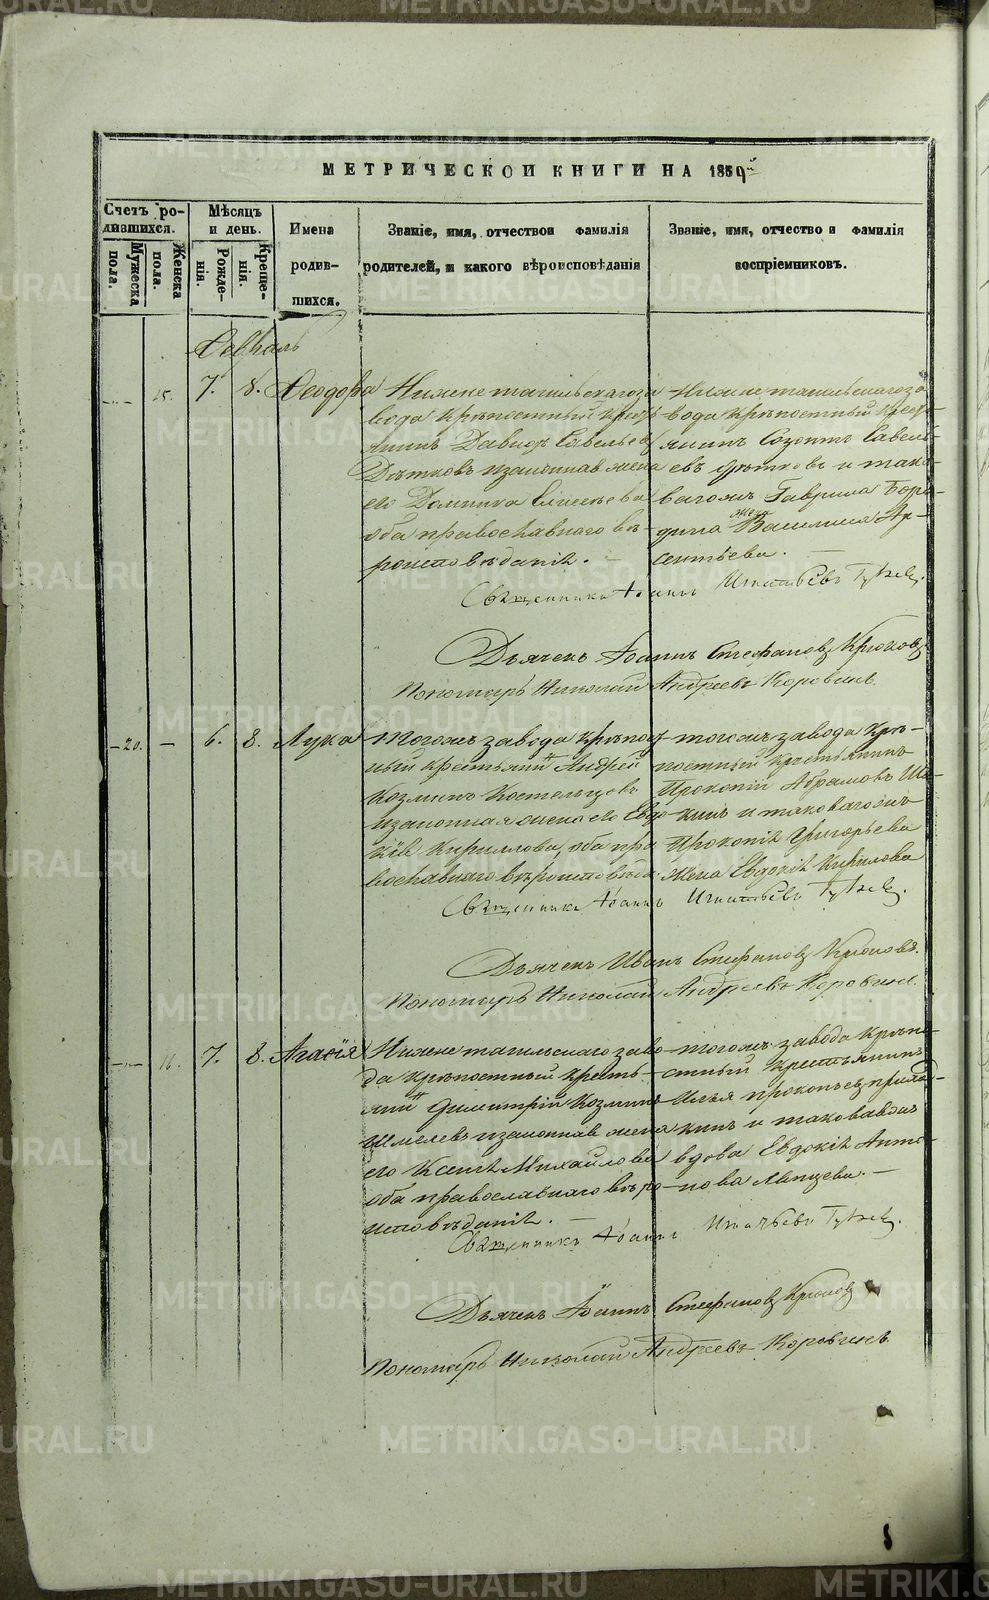 МЕТРИЧЕСКОЙ КНИГИ НА 1859й
Счетъ ро-
дившихся.
Мужеска
пола.
Женска
пола.
Мѣсяцъ
и день.
Рожде-
нія.
Креще-
нія.
Имена
родив-
шихся.
Званіе, имя, отчествои фамилія
родителей, и какого вѣроисповѣданія
Званіе, имя, отчество и фамилія
воспріемниковъ.
Февраль
15. 7. 8. Ѳеодора
Нижне тагильскаго за
вода крѣпостный крест
янинъ Давидъ Савельевъ
Дѣтковъ и законная жена
его Домника Елисеева
оба православнаго вѣ-
роисповѣданія.
Нижне тагильскаго за
вода крѣпостный крест
янинъ Созонтъ Савель
евъ Дѣтковъ и тако
вагожъ Гаврила Боро
дина жена Василиса Ар-
сентьева.
Священникъ Іоаннъ Игнатьевъ
Дьячекъ Іоаннъ Стефановъ Крюковъ
Пономарь Николай Андреевъ Коровинъ.
20. 6. 8. Лука
Тогожъ завода крѣпост
ный крестьянинъ Андрей
Козминъ Костельцевъ
и законная жена его Евдо
кія Кириллова, оба пра
вославнаго вѣроисповѣда
тогожъ завода крѣ-
постный крестьянинъ
Прокопій Абрамовъ
и таковагожъ
Прокопія Григорьева
жена Евдокія Кирилова
Священникъ Іоаннъ Игнатьевъ
Дьячекъ Иванъ Стефановъ Крюковъ.
Пономарь Николай Андреевъ Коровинъ.
16. 7. 8. Агафія
Нижне тагильскаго заво
да крѣпостный кресть
янинъ Димитрій Козминъ
Шмелевъ и законная жена
его Ксенія Михайлова
оба православнаго вѣро
исповѣданія.
тогожъ завода крѣпо
стный крестьянинъ
Илья Прокопьевъ
и таковаяжъ
вдова Евдокія Анто
нова
Священникъ Іоаннъ Игнатьевъ
Дьячекъ Іоаннъ Стефановъ Крюковъ
Пономарь Николай Андреевъ Коровинъ.
METRIKI.GASO-URAL.RU